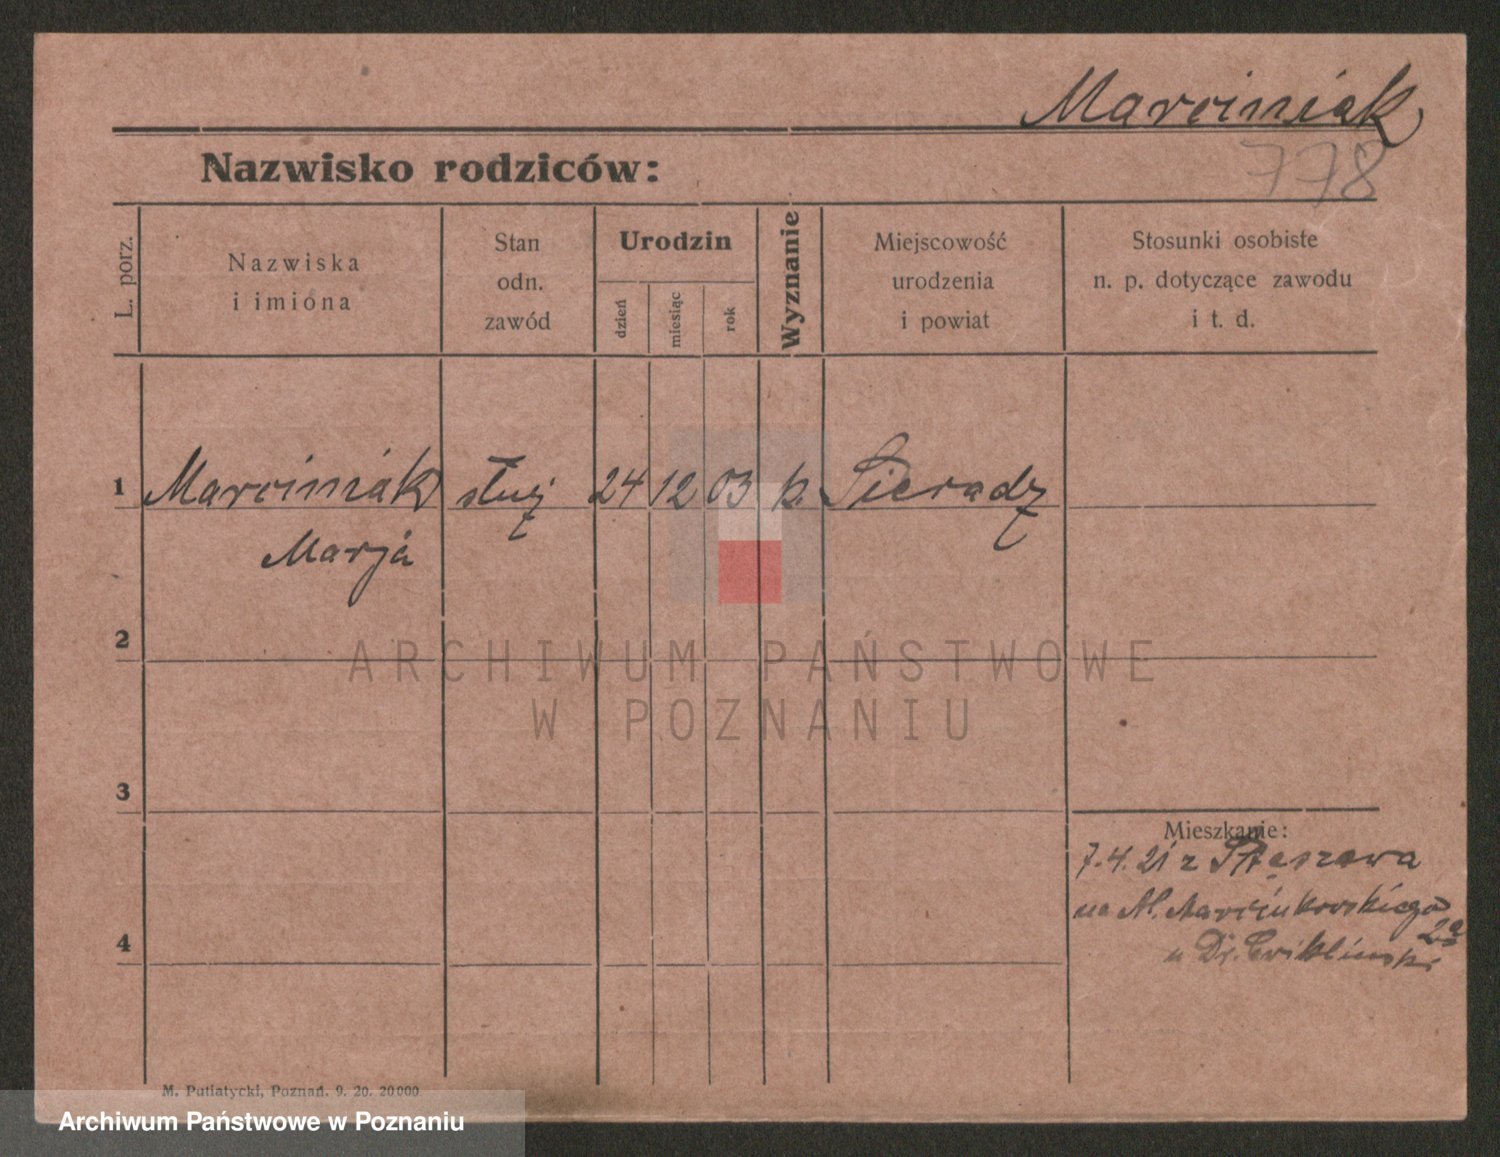 Marciniak
Nazwisko rodziców:
778
L. porz.
Nazwiska
i imiona
Stan
odn.
zawód
Urodzin
dzień
miesiąc
rok
Wyznanie
Miejscowość
urodzenia
i powiat
Stosunki osobiste
n. p. dotyczące zawodu
i t. d.
1 Marciniak służ 24 12 03 k. Sieradz
Marja
2
ARCHIWUM PAŃSTWOWE
W POZNANIU
3
Mieszkanie:
7.4.21 z
na Al. Marcinkowskiego
2a
4
u Dr.
M. Putiatycki, Poznań. 9. 20. 20000
Archiwum Państwowe w Poznaniu